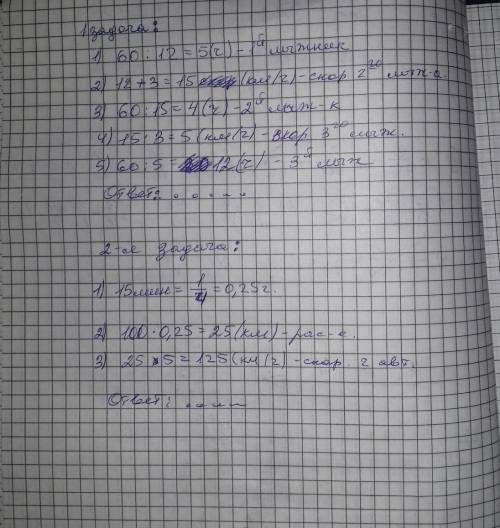 1 задача:
1) 60 : 12 = 5(г) - 1й лыжник
2) 12 + 3 = 15 (км/г) - скор 2го лыж-а
3) 60 : 15 = 4 (г) - 2й лыж-к
4) 15 : 3 = 5 (км/г) - скор 3го лыж.
5) 60 : 5 = 12(г) - 3й лыж
Ответ: . . . . .
2-я задача:
1) 15мин = 1/4 = 0,25г.
2) 100 · 0,25 = 25 (км) - рас-е.
3) 25 · 5 = 125 (км/г) - скор. 2 авт.
Ответ: .....